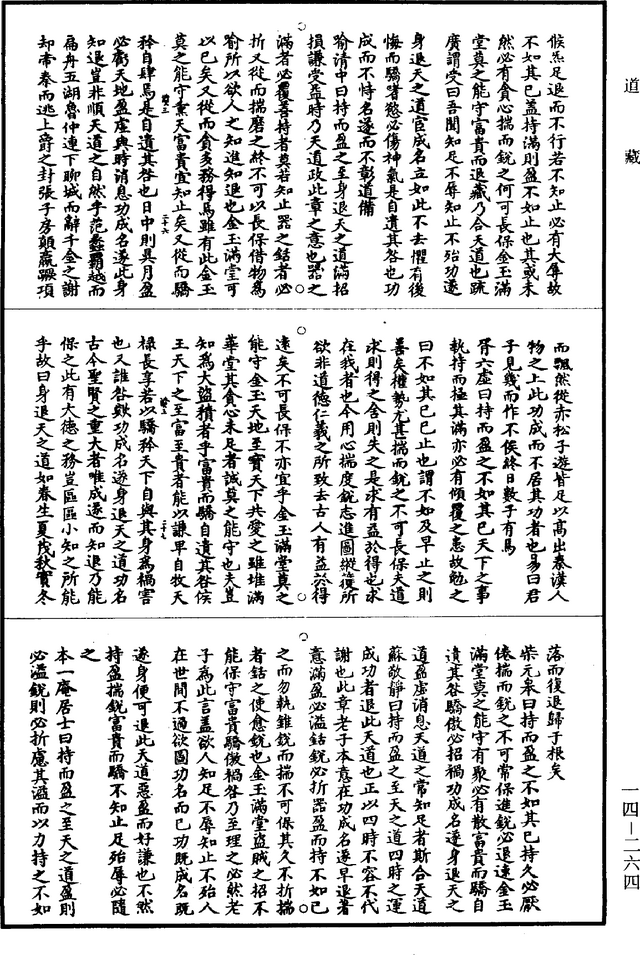 道藏
候炁足退而不行若不知止必有大辱故
不如其已蓋持滿則盈不如止也其或未
然必有貪心揣而銳之何可長保金玉滿
堂莫之能守富貴而退藏乃合天道也䟽
廣謂受曰吾聞知足不辱知止不殆功遂
身退天之道宦成名立如此不去懼有後
悔而驕奢慾必傷神氣是自遺其咎也功
成而不恃名遂而不彰道備
喻清中曰持而盈之至身退天之道滿招
損謙受益時乃天道政此章之意也噐之
滿者必覆善持者莫若知止噐之銛者必
折又從而揣磨之終不可以長保借物為
喻所以欲人之知進知退也金玉滿堂可
以已矣又從而貪多務得焉雖有此金玉
莫之能守熏天富貴宜知止矣又從而驕
矜自肆焉是自遺其咎也日中則昃月盈
必虧天地盈虛與時消息功成名遂此身
知退豈非順天道之自然乎范蠡霸越而
扁舟五湖魯仲連下聊城而辭千金之謝
却帝秦而逃上爵之封張子房顛嬴蹶項
而飄然從赤松子遊皆足以高出秦漢人
物之上此功成而不居其功者也易曰君
子見幾而作不俟終日數子有焉
胥六虛曰持而盈之不如其已天下之事
執持而極其滿亦必有傾覆之患故勉之
曰不如其已已止也謂不如及早止之則
善矣權勢尤甚揣而銳之不可長保夫道
求則得之舍則失之是求有益於得也求
在我者也今用心揣度銳志進圖縱獲所
欲非道德仁義之所致去古人有益於得
遠矣不可長保不亦宜乎金玉滿堂莫之
能守金玉天地至寶天下共愛之雖堆滿
華堂其貪心未足者誠莫之能守也夫豈
知為大盜積者乎富貴而驕自遺其咎侯
王天下之至富至貴者能以謙卑自牧天
祿長享若以驕矜天下自與其身為禍害
也又誰咎歟功成名遂身退天之道功名
古今聖賢之重大者唯成遂而知退乃能
保之此有大德之務豈區區小知之所能
乎故曰身退天之道如春生夏茂秋實冬
落而復退歸于根矣
柴元皋曰持而盈之不如其已持久必厭
倦揣而銳之不可常保進銳必退速金玉
滿堂莫之能守有聚必有散富貴而驕自
遺其咎驕傲必招禍功成名遂身退天之
道盈虛消息天道之常知足者斯合天道
蘇敬靜曰持而盈之至天之道四時之運
成功者退此天道也正以四時不容不代
謝也此章老子本意在功成名遂早退著
意滿盈必溢銛銳必折噐盈而持不如已
之而勿執錐銳而揣不可保其久不折揣
者銛之使愈銳也金玉滿堂盜賊之招不
能保守富貴驕傲禍咎乃至理之必然老
子為此言蓋欲人知足不辱知止不殆人
在世間不過欲圖功名而已功既成名既
遂身便可退此天道惡盈而好謙也不然
持盈揣銳富貴而驕不知止足殆辱必隨
之
本一庵居士曰持而盈之至天之道盈則
必溢銳則必折慮其溢而以力持之不如
一四—二六四